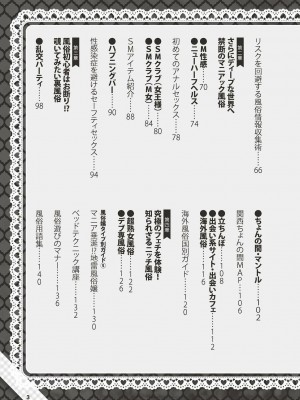 リスクを回避する風俗情報収集術……66
第二章
さらにディープな世界へ
禁断のマニアック風俗
●M性感……70
●ニューハーフヘルス……74
初めてのアナルセックス……78
●SMクラブ(女王様)……80
●SMクラブ(M女)……84
SMアイテム紹介……88
●ハプニングバー……90
性感染症を避けるセーフティセックス……94
第三章
風俗初心者はお断り!?
覗いてみたい裏風俗
●乱交パーティ……98
●ちょんの間・マントル……102
関西ちょんの間MAP……106
●立ちんぼ……108
●出会い系サイト・出会いカフェ……112
●海外風俗……116
海外風俗国別ガイド……120
第四章
究極のフェチを体験!
知られざるニッチ風俗
●超熟女風俗……122
●デブ専風俗……126
風俗嬢タイプ別ガイド
マニア垂涎!?地雷風俗嬢……130
ベッドテクニック講座……132
風俗遊びのマナー……136
風俗用語集……140
3